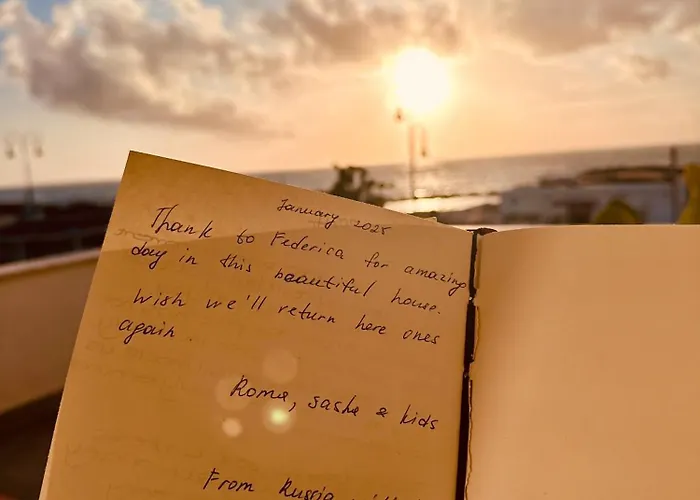 January 2025
Thank to Federica for amazing
day in this beautiful house.
Wish we'll return here ones
again.
Roma, sasha & kids
From Russia